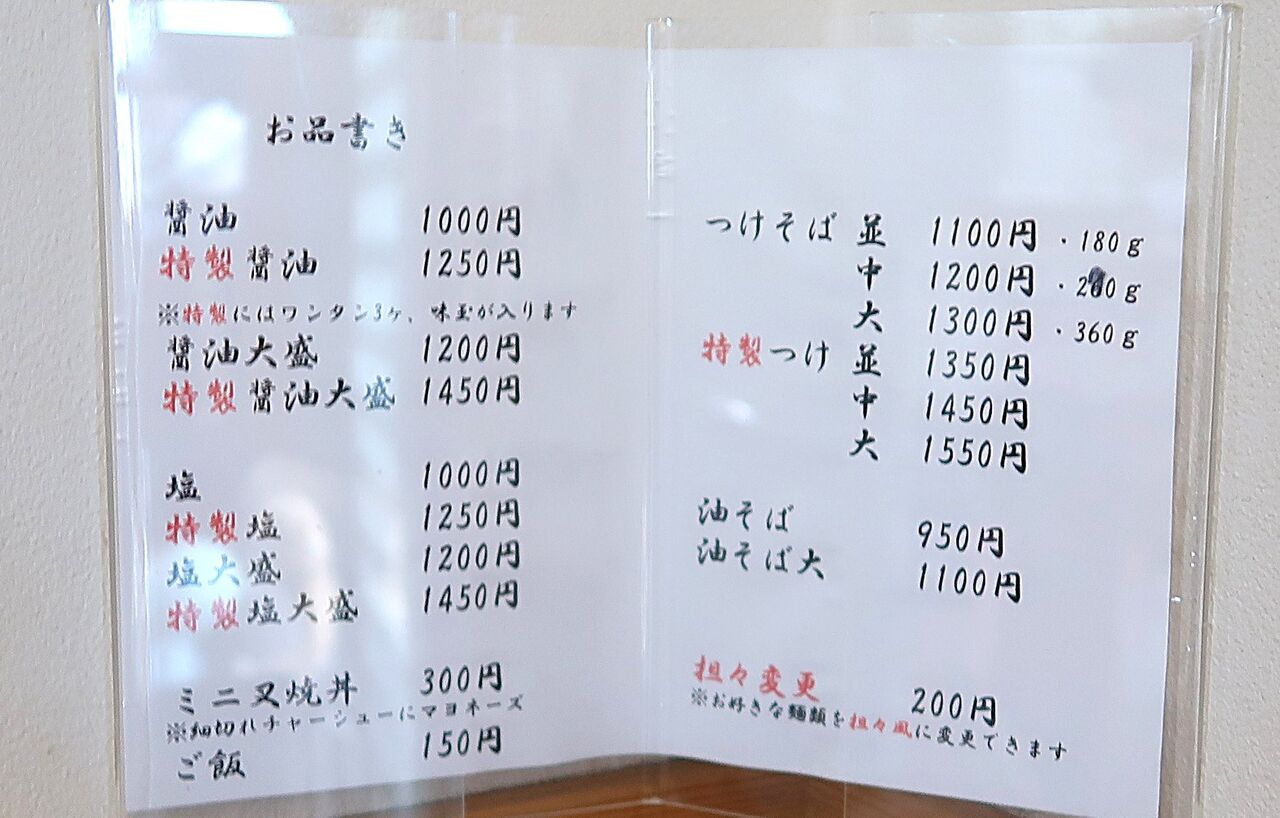 お品書き
醤油 1000円
特製醤油 1250円
※特製にはワンタン3ヶ、味玉が入ります
醤油大盛 1200円
特製醤油大盛 1450円
塩 1000円
特製塩 1250円
塩大盛 1200円
特製塩大盛 1450円
ミニ叉焼丼 300円
※細切れチャーシューにマヨネーズ
ご飯 150円
つけそば 並 1100円 ・180g
中 1200円
大 1300円 ・360g
特製つけ 並 1350円
中 1450円
大 1550円
油そば 950円
油そば大 1100円
担々変更 200円
※お好きな麺類を担々風に変更できます